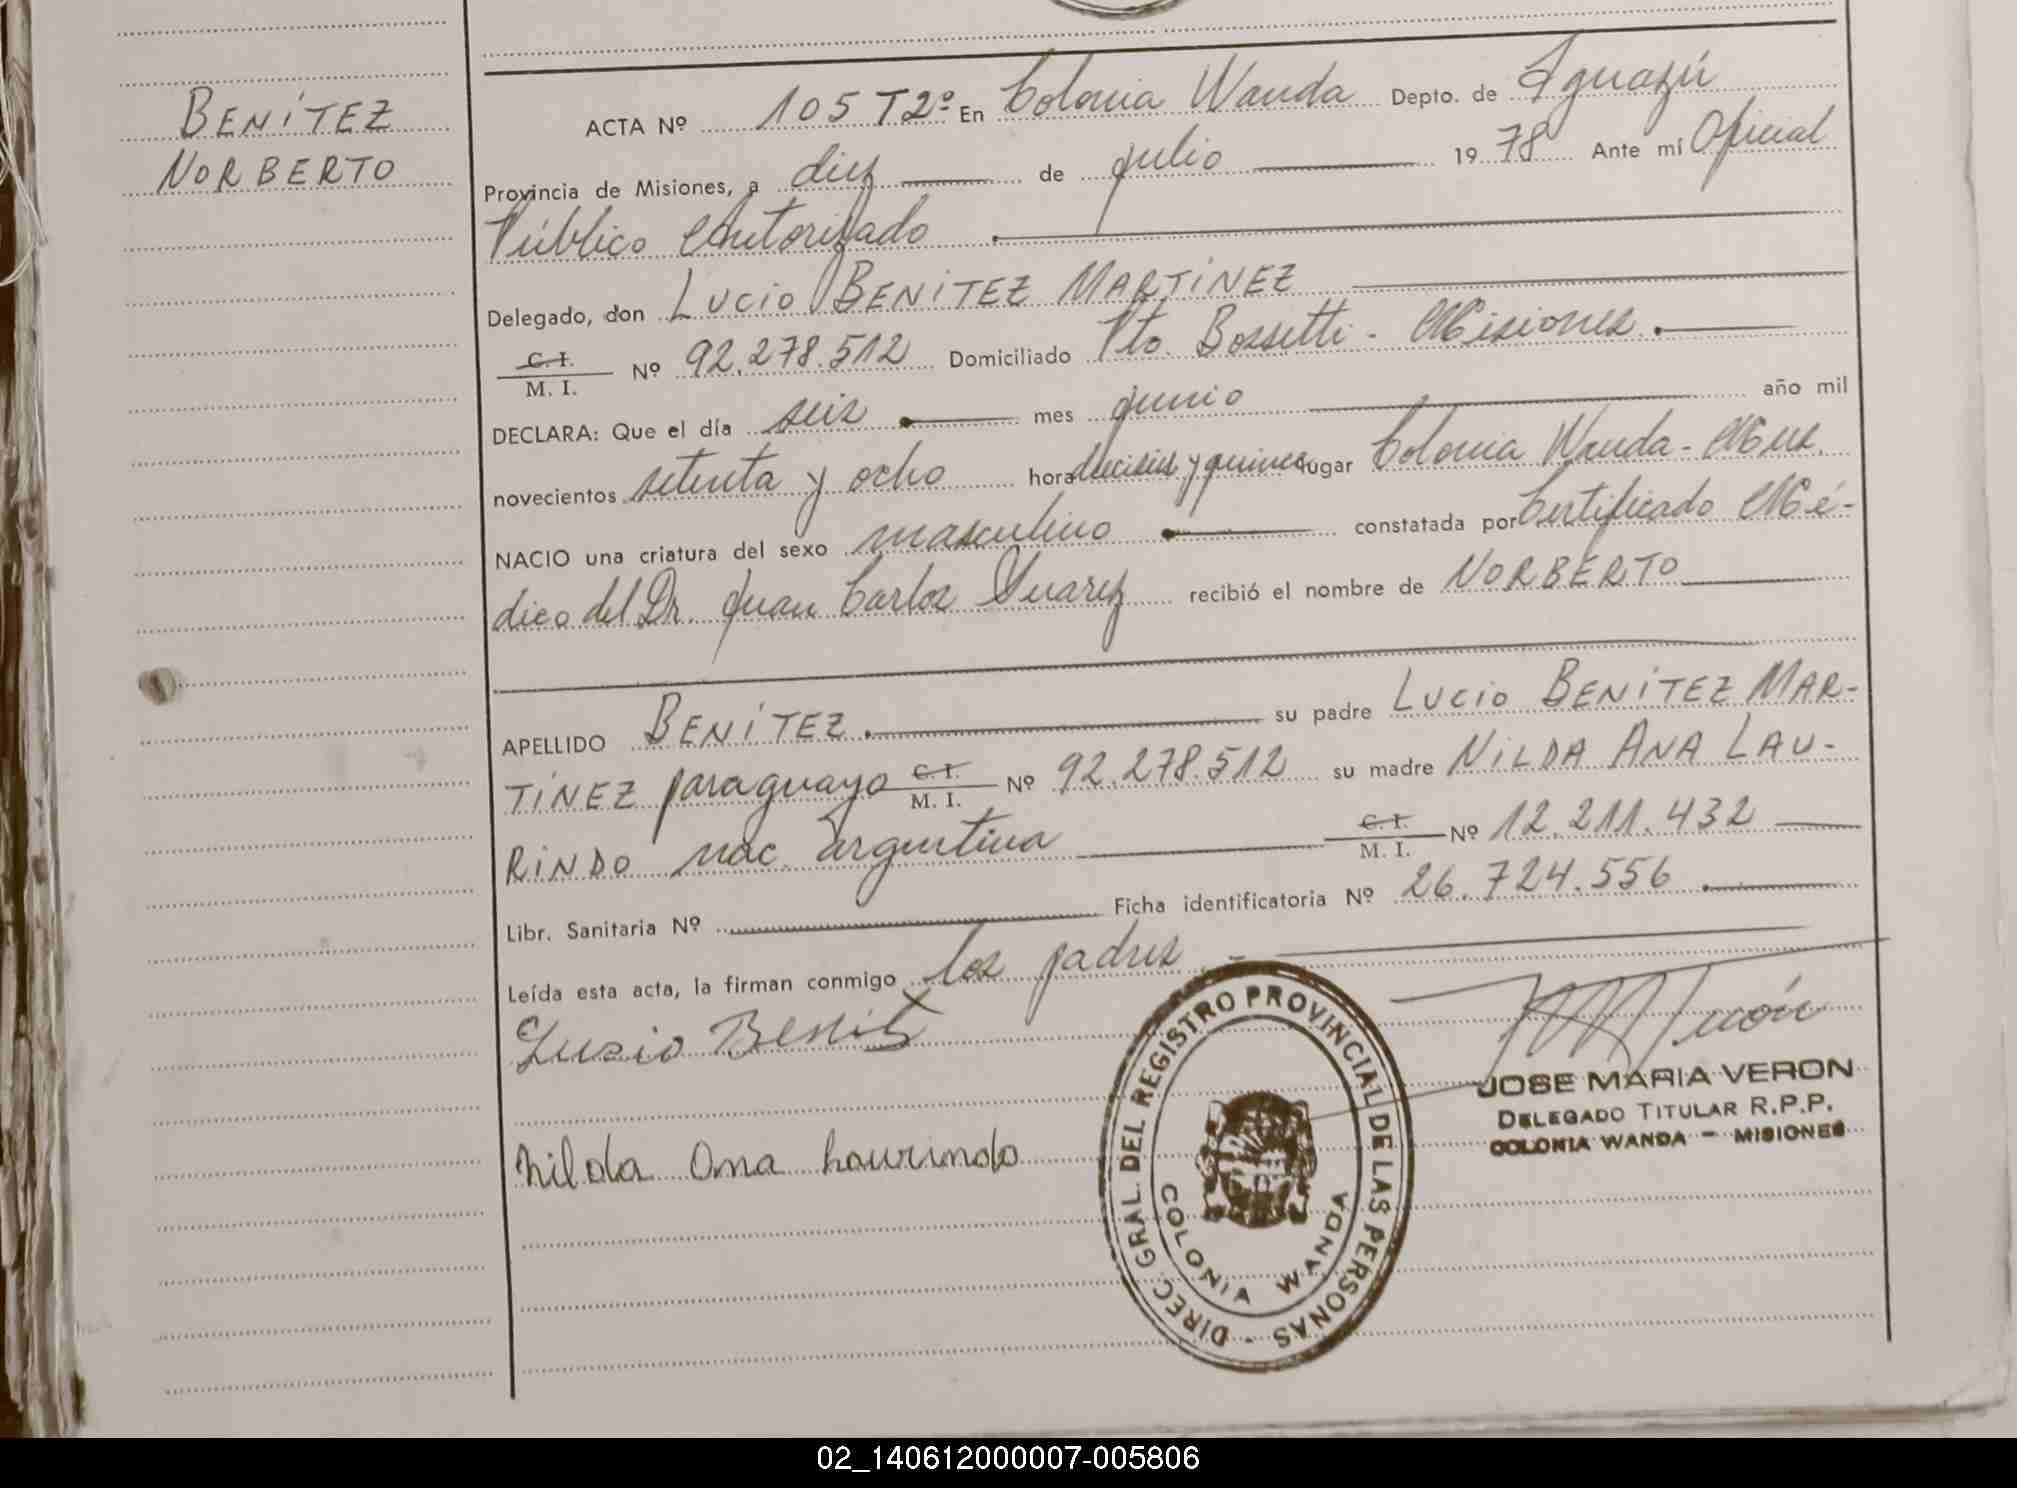 BENÍTEZ
NORBERTO
ACTA Nº 105 T2º En Colonia Wanda Depto. de Iguazú
Provincia de Misiones, a diez de julio 1978 Ante mí Oficial
Público Autorizado
Delegado, don LUCIO BENÍTEZ MARTÍNEZ
C. I.
M. I. Nº 92.278.512 Domiciliado Pto. Bossetti - Misiones.
DECLARA: Que el día seis mes junio año mil
novecientos setenta y ocho hora dieciseis y quince lugar Colonia Wanda - Mnes.
NACIO una criatura del sexo masculino constatada por Certificado Mé-
dico del Dr. Juan Carlos Suarez recibió el nombre de NORBERTO
APELLIDO BENÍTEZ. su padre LUCIO BENÍTEZ MAR-
TÍNEZ paraguayo C. I. M. I. Nº 92.278.512 su madre NILDA ANA LAU-
RINDO nac. argentina C. I. M. I. Nº 12.211.432
Libr. Sanitaria Nº Ficha identificatoria Nº 26.724.556
Leída esta acta, la firman conmigo los padres
Lusio Benit
Nilda Ana Laurindo
DIREC. GRAL. DEL REGISTRO PROVINCIAL DE LAS PERSONAS -
COLONIA WANDA
JOSE MARIA VERON
DELEGADO TITULAR R.P.P.
COLONIA WANDA - MISIONES
02_140612000007-005806